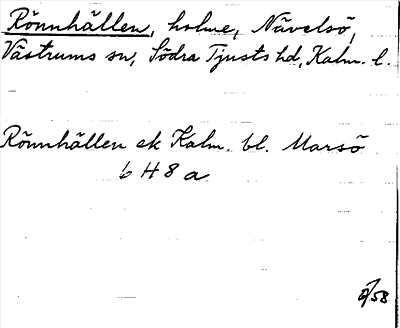 Rönnhällen, holme, Nävelsö,
Västrums sn, Södra Tjusts hd, Kalm. l.
Rönnhällen ek Kalm. bl. Marsö
6 H 8 a